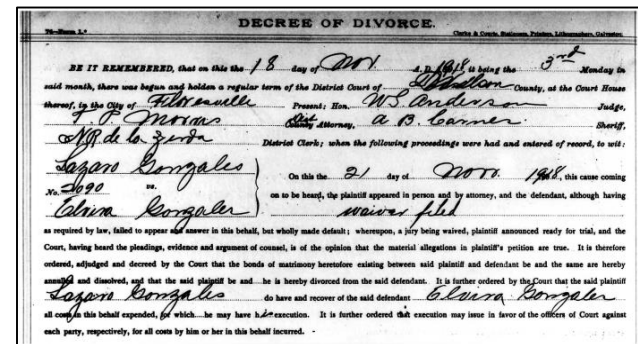 DECREE OF DIVORCE.
Clarke & Courts, Stationers, Printers, Lithographers, Galveston.
BE IT REMEMBERED, that on this the 18 day of Nov. A. D. 1918, it being the 3rd Monday in
said month, there was begun and holden a regular term of the District Court of Wilson County, at the Court House
thereof, in the City of Floresville Present: Hon. W S. Anderson Judge,
Dist Attorney, A B. Carner Sheriff,
N R de la Zerda District Clerk; when the following proceedings were had and entered of record, to wit:
Lazaro Gonzales
On this the 21 day of Nov. 1918, this cause coming
No. 2090 vs. on to be heard, the plaintiff appeared in person and by attorney, and the defendant, although having
Elvira Gonzales waivar filed
as required by law, failed to appear and answer in this behalf, but wholly made default; whereupon, a jury being waived, plaintiff announced ready for trial, and the
Court, having heard the pleadings, evidence and argument of counsel, is of the opinion that the material allegations in plaintiff's petition are true. It is therefore
ordered, adjudged and decreed by the Court that the bonds of matrimony heretofore existing between said plaintiff and defendant be and the same are hereby
annulled and dissolved, and that the said plaintiff be and he is hereby divorced from the said defendant. It is further ordered by the Court that the said plaintiff
Lazaro Gonzales do have and recover of the said defendant Elvira Gonzales
all costs in this behalf expended, for which he may have his execution. It is further ordered that execution may issue in favor of the officers of Court against
each party, respectively, for all costs by him or her in this behalf incurred.